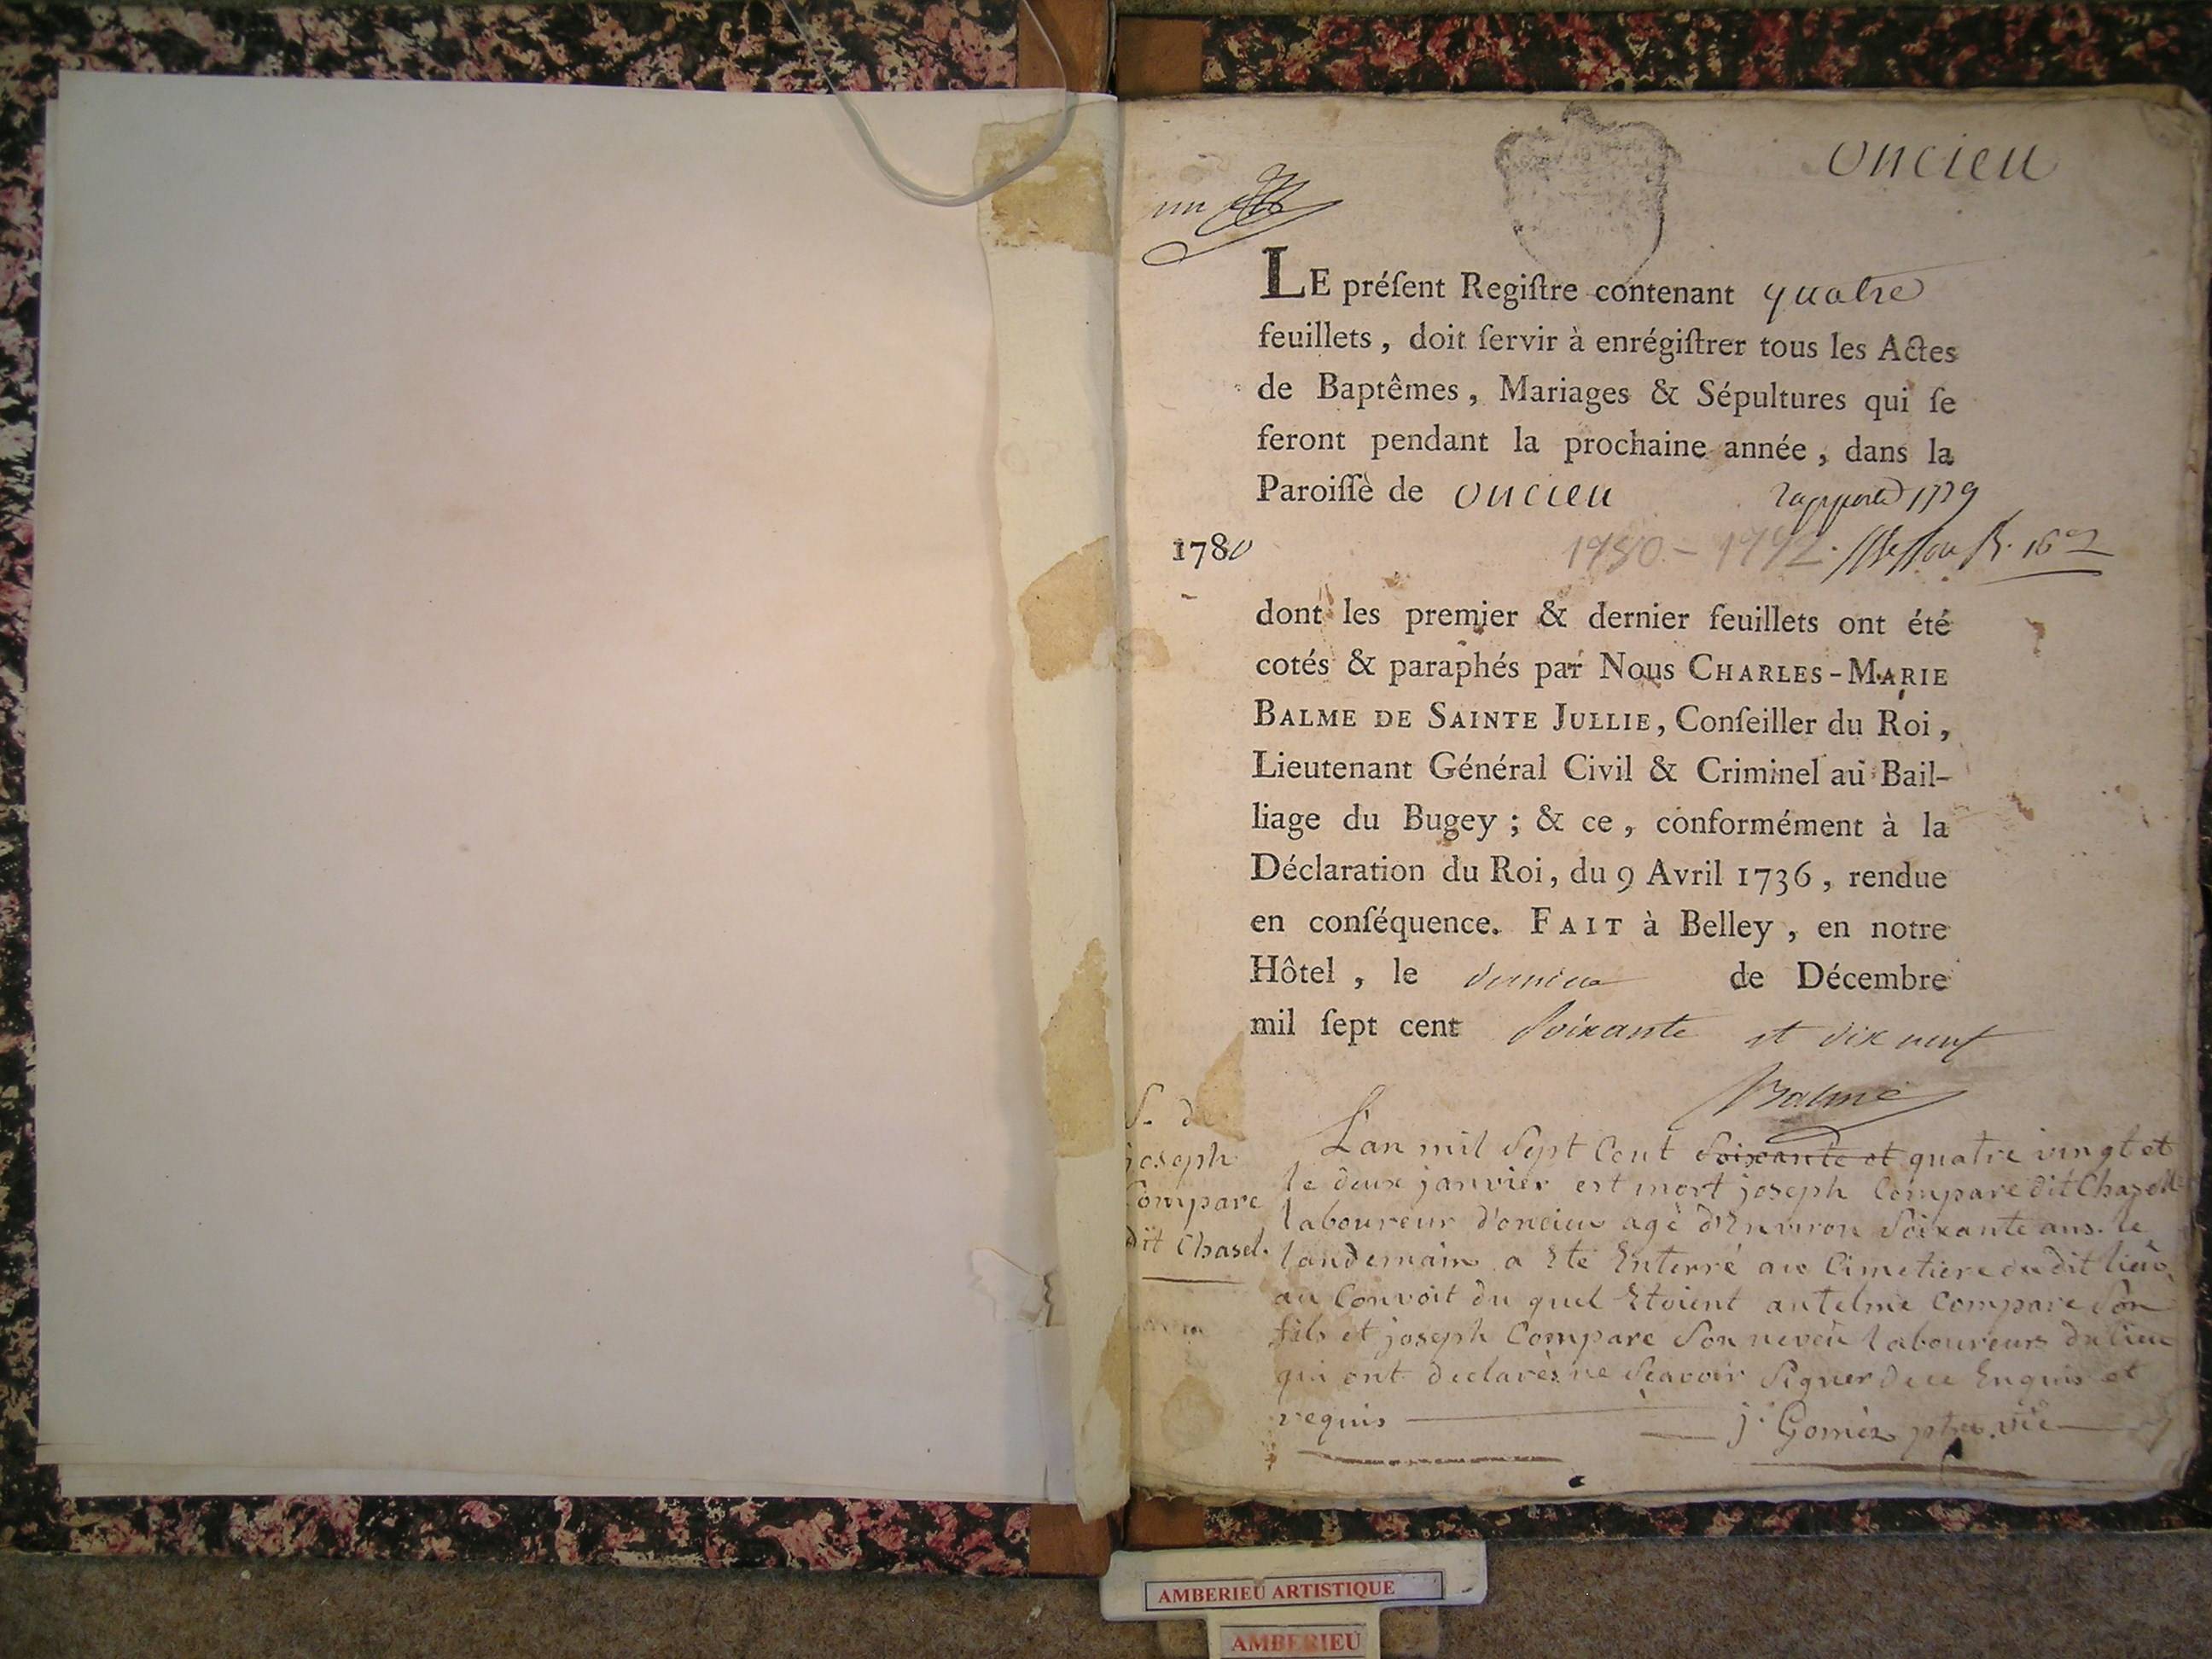 Oncieu
un
LE préſent Regiſtre contenant quatre
feuillets, doit ſervir à enrégiſtrer tous les Actes
de Baptêmes, Mariages & Sépultures qui ſe
feront pendant la prochaine année, dans la
Paroiſſe de Oncieu rapporté 1779
1780 1780-1792
dont les premier & dernier feuillets ont été
cotés & paraphés par Nous CHARLES-MARIE
BALME DE SAINTE JULLIE, Conſeiller du Roi,
Lieutenant Général Civil & Criminel au Bail-
liage du Bugey; & ce, conformément à la
Déclaration du Roi, du 9 Avril 1736, rendue
en conſéquence. FAIT à Belley, en notre
Hôtel, le dernier de Décembre
mil ſept cent soixante et dix neuf
Balme
S. de
joseph
Compare
dit Chasel.
L'an mil sept cent soixante et quatre vingt et
le deux janvier est mort joseph Compare dit Chazel
laboureur d'oncieu agé d'Environ soixante ans. le
landemain a Eté Enterré au Cimetiere du dit lieu
au Convoit du quel Etoient antelme Compare son
fils et joseph Compare son neveu laboureurs du lieu
qui ont declarés ne scavoir signer de ce Enquis et
requis j. Gomez ptre. vic
AMBERIEU ARTISTIQUE
AMBERIEU